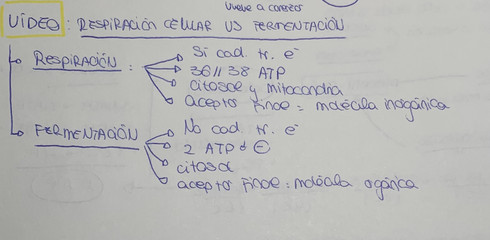 vuelve a correr
VÍDEO: RESPIRACIÓN CELULAR VS FERMENTACIÓN
RESPIRACIÓN: Si cad. tr. e⁻
36 // 38 ATP
citosol y mitocondria
aceptor Final = molécula inorgánica
FERMENTACIÓN No cad tr. e⁻
2 ATP
citosol
aceptor Final: molécula orgánica